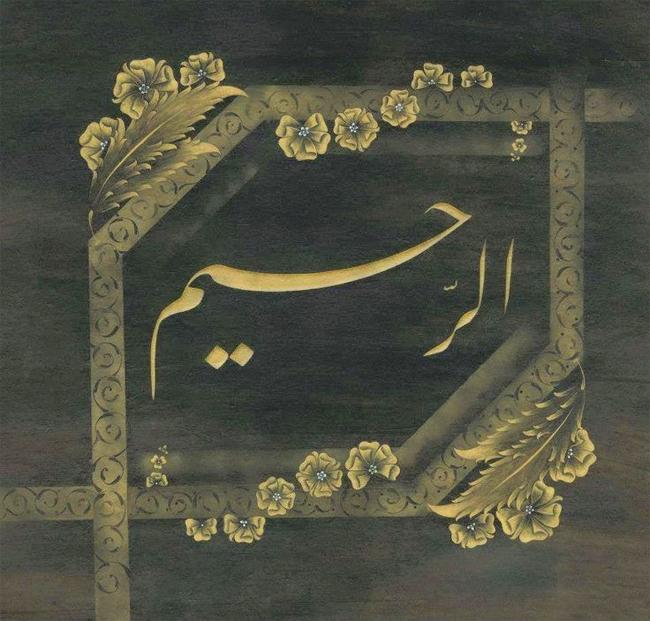 الرّحيم